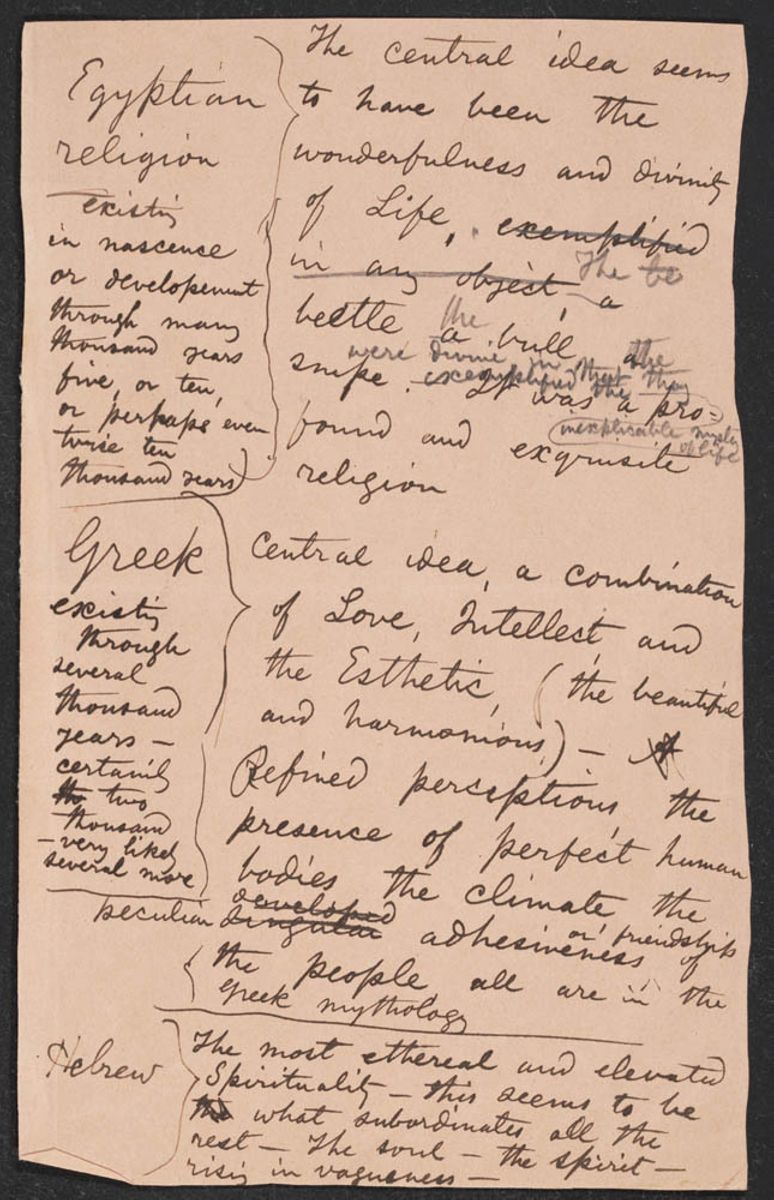 Egyptian
religion
existing
in nascence
or developement
through many
thousand years
five, or ten,
or perhaps even
twice ten
thousand years)
The central idea seems
to have been the
wonderfulness and divinity
of Life, exemplified
in any object The be
a
beetle a the bull, a the
snipe were divine in
exemplified that they
the
It was a pro-
inexplicable mystery
of life
found and exquisite
religion
Greek
existing
through
several
thousand
years —
certainly
th two
thousand
— very likely
several more
Central idea, a combination
of Love, Intellect, and
the Esthetic, (the beautiful
and harmonious) —
Refined perceptions, the
presence of perfect human
bodies the climate the
developed
peculiar singular adhesiveness or friendship of
the people, all are in the
Greek mythology
Hebrew
The most ethereal and elevated
Spirituality — this seems to be
what subordinates all the
rest — The soul — the spirit —
rising in vagueness —